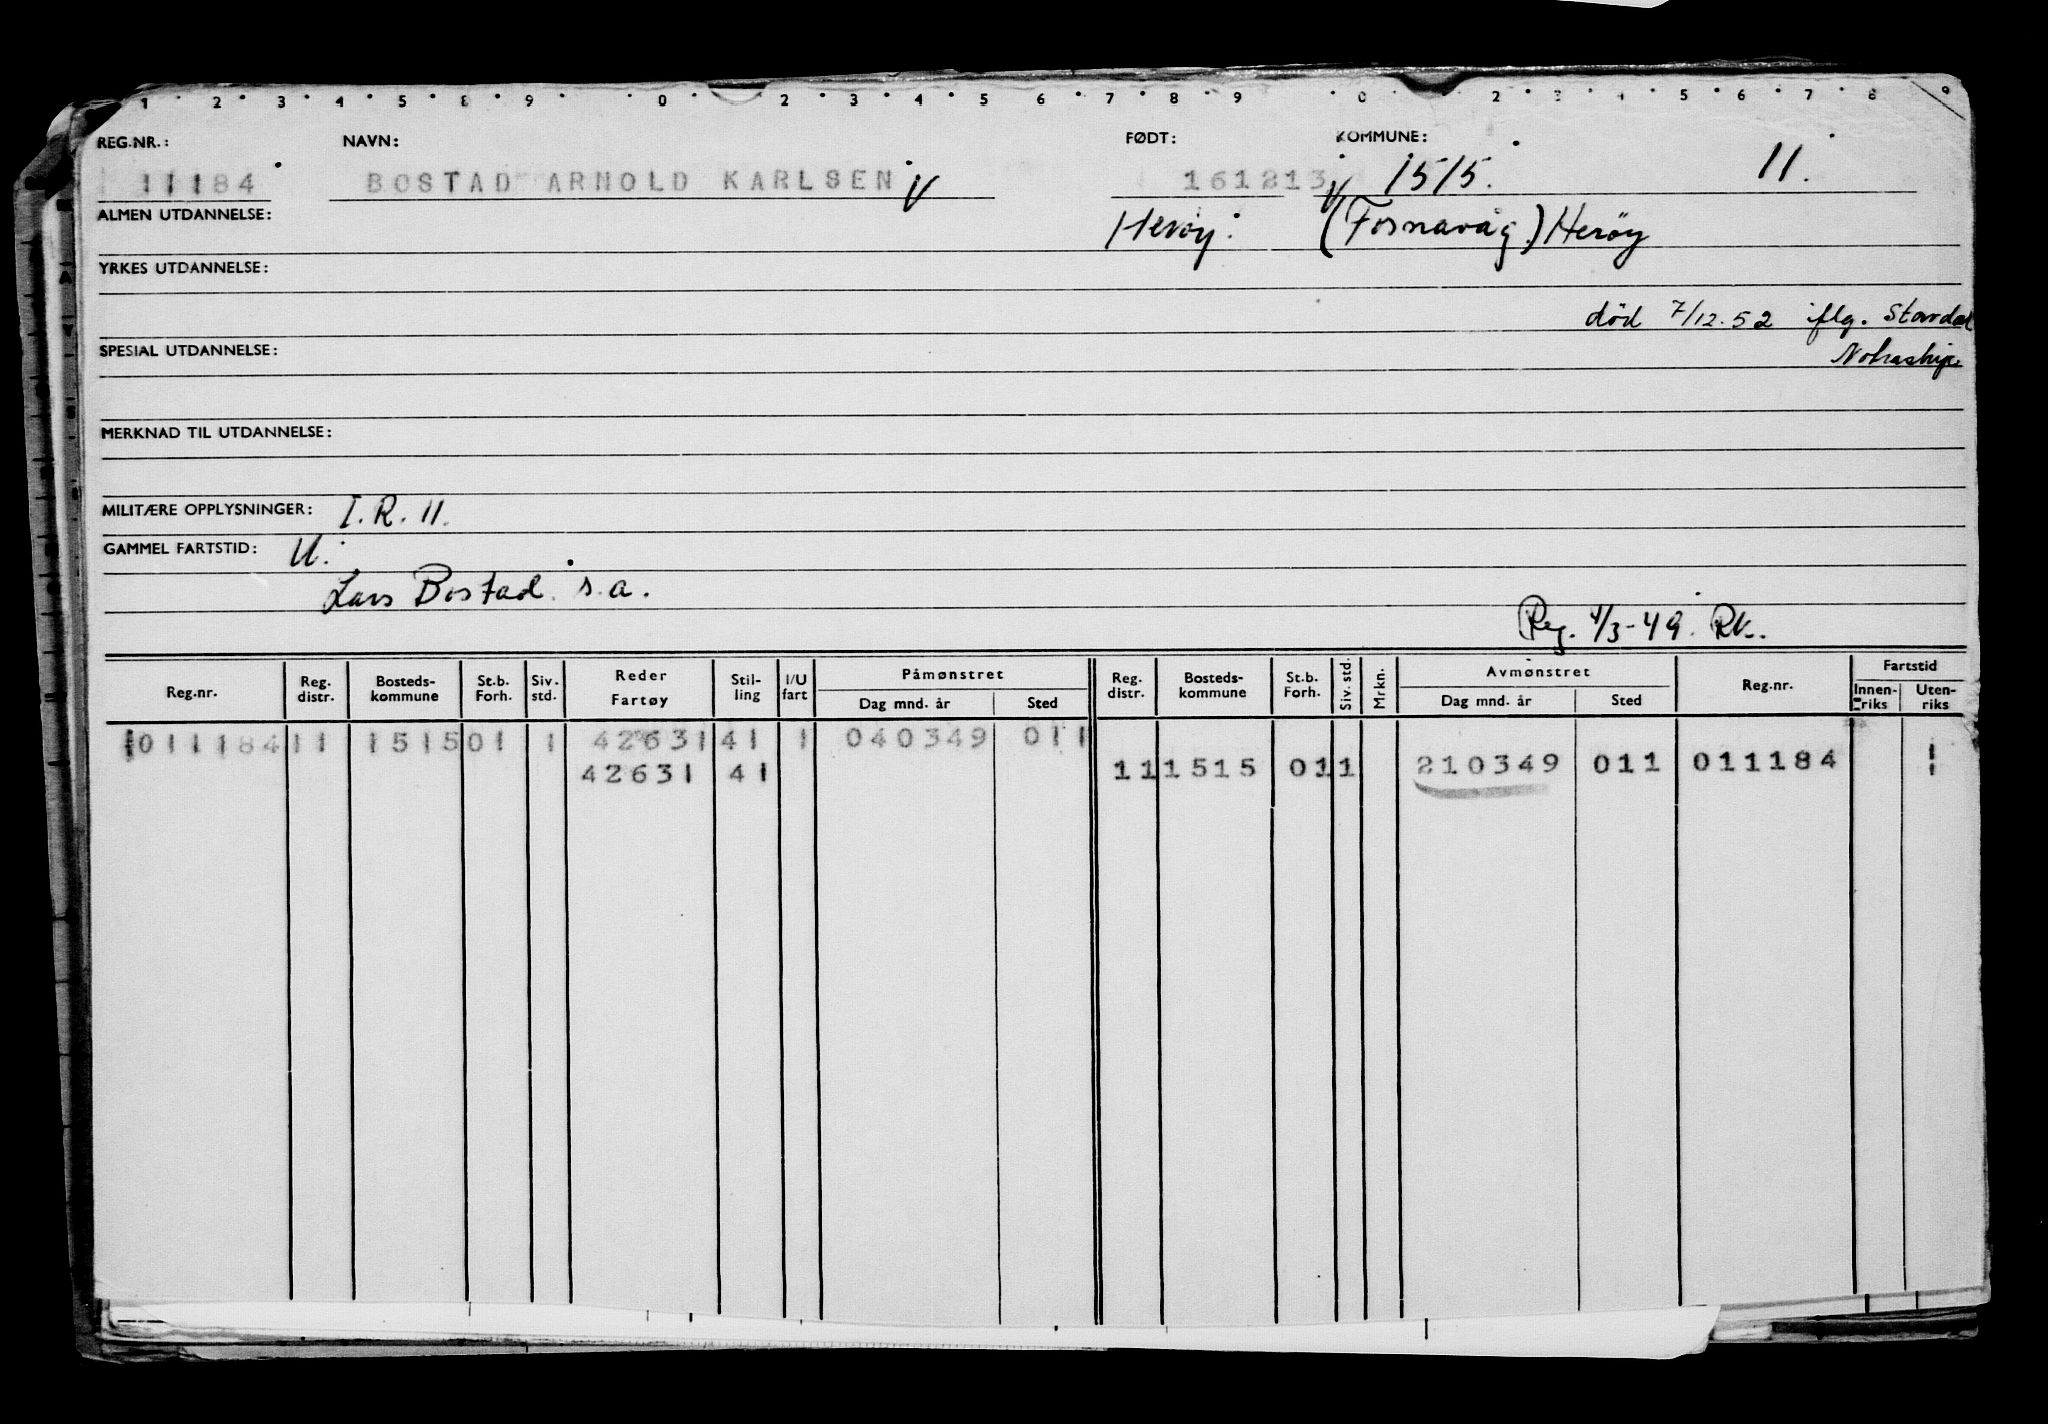 1 2 3 4 5 8 9 0 2 3 4 5 6 7 8 9 0 2 3 4 5 6 7 8 9
REG.NR.: NAVN: FØDT: KOMMUNE:
11184 BOSTAD ARNOLD KARLSEN 161213 1515. 11.
ALMEN UTDANNELSE: Herøy. (Fosnavåg.) Herøy
YRKES UTDANNELSE:
død 7/12.52 iflg.
SPESIAL UTDANNELSE: Notraship.
MERKNAD TIL UTDANNELSE:
MILITÆRE OPPLYSNINGER: I.R. 11.
GAMMEL FARTSTID: U.
Lars Bostad s.a.
Reg. 4/3-49. Rk.
Reg.nr. Reg. distr. Bosteds- kommune St.b. Forh. Siv. std. Reder Fartøy Stil- ling I/U fart Påmønstret Dag mnd. år Sted Reg. distr. Bosteds- kommune St.b. Forh. Siv. std. Mrkn. Avmønstret Dag mnd. år Sted Reg.nr. Fartstid Innen- riks Uten- riks
011184 11 1515 01 1 42631 41 1 040349 011
42631 41 11 1515 01 1 210349 011 011184 1